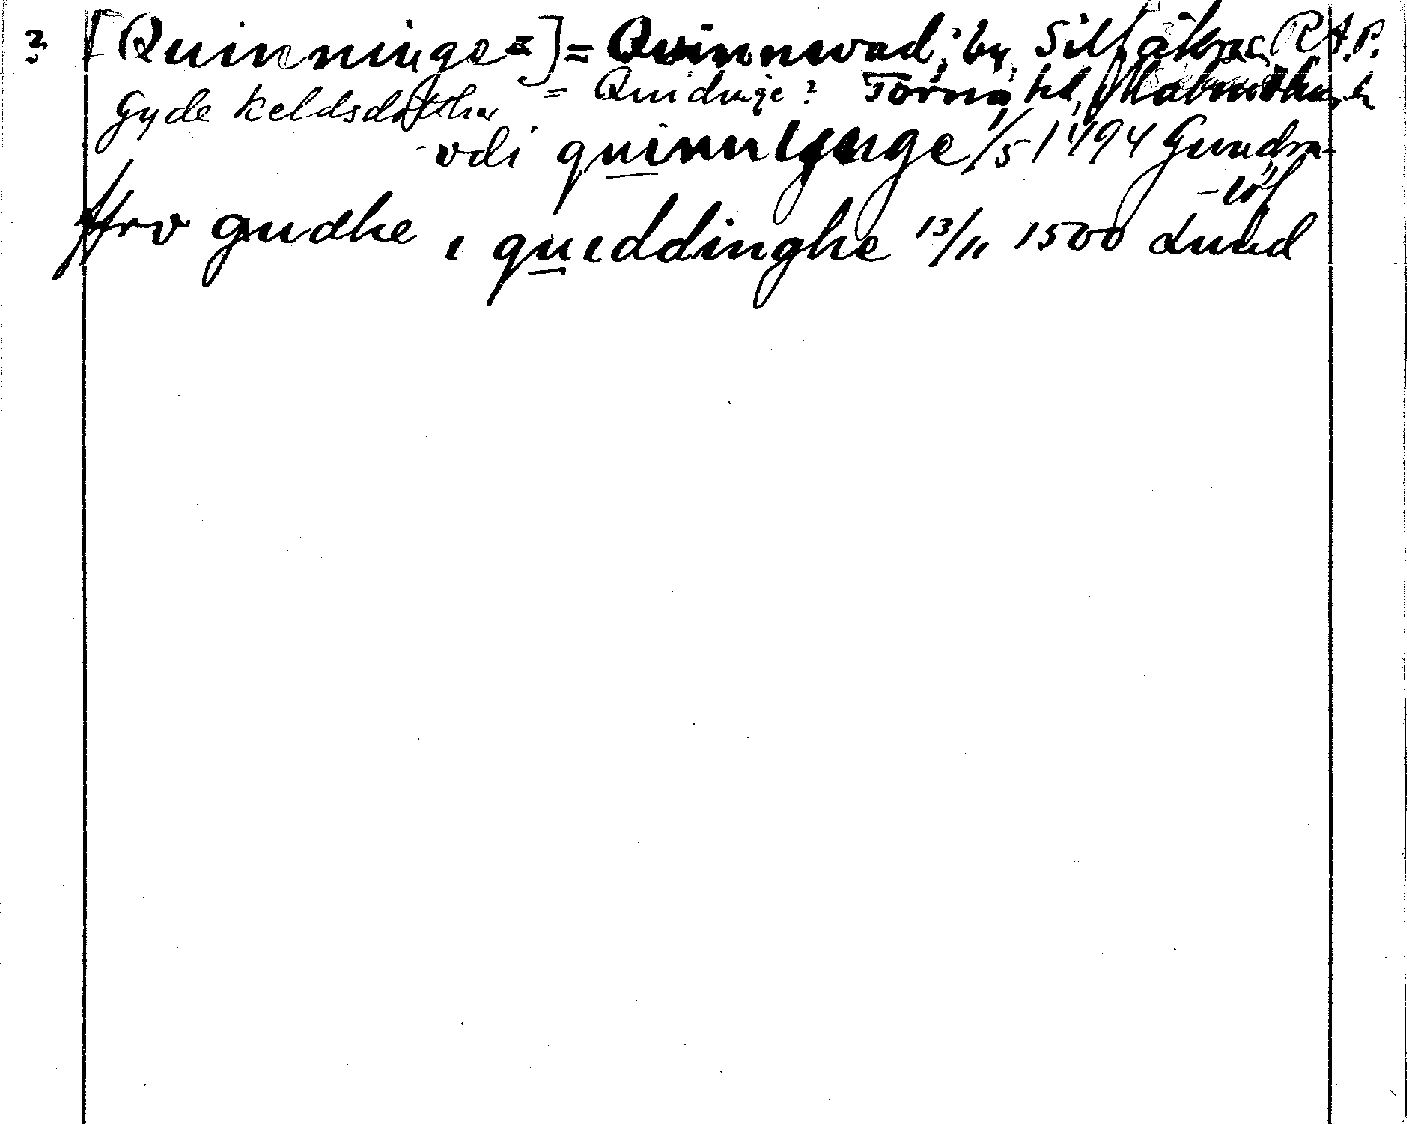 ? [Quinninge=] = Quinnevad, by, Silfåkra R.A.P.
Gyde keldsdotther = Quidinge? Torna hd,
vdi quinnlynge 1/5 1494 Gundra-
löf
ffrv gudhe i queddinghe 13/11 1500 Lund